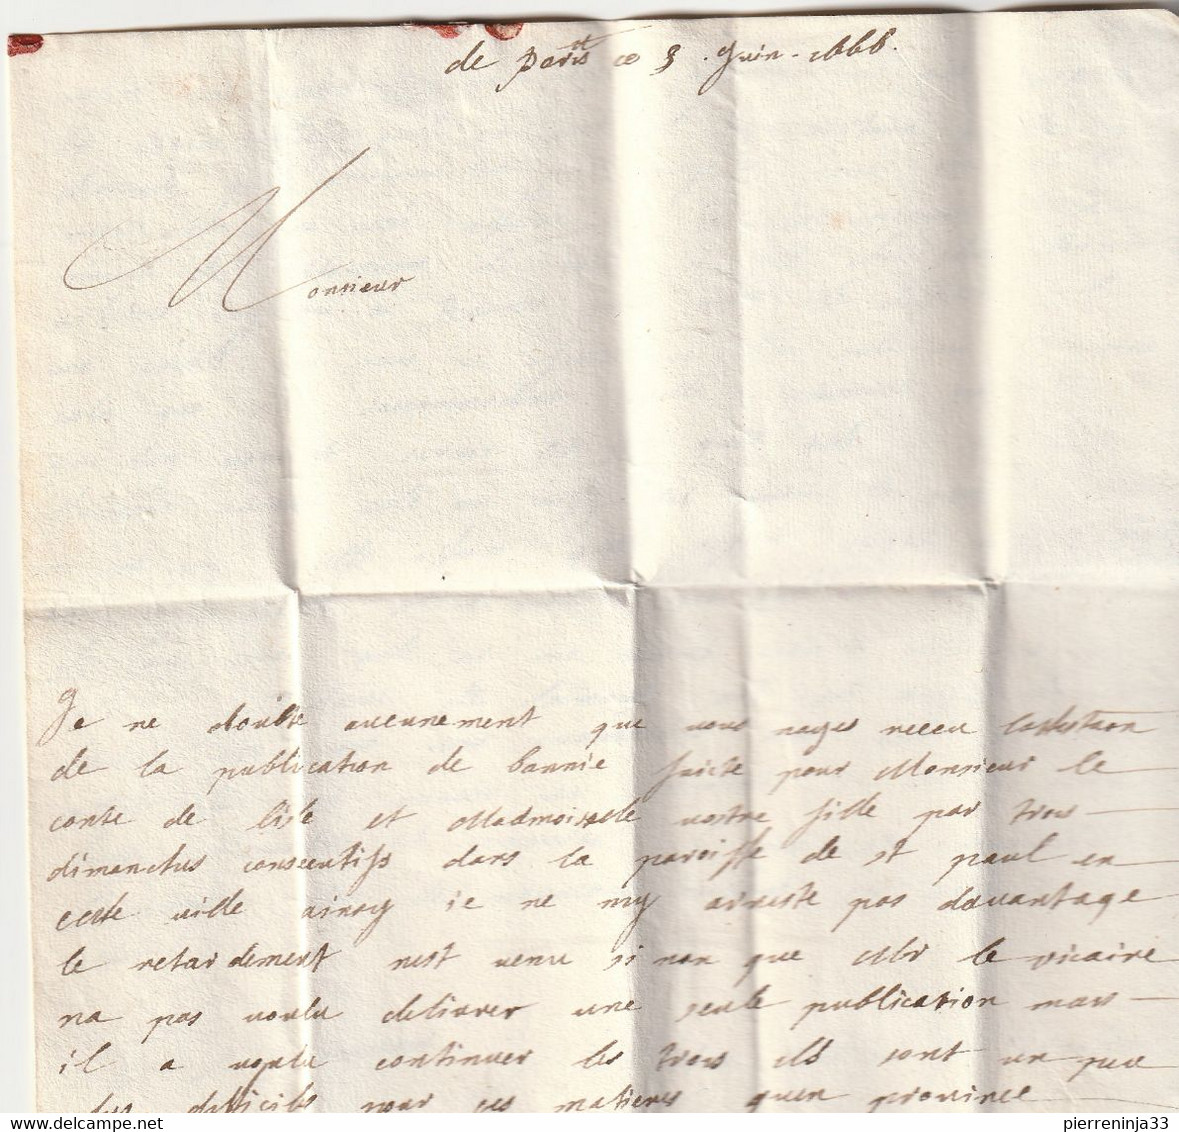 de Paris ce 3 Juin - 1666.
Monsieur
Je ne doubte aucunement que vous nayes receu lattestaon
de la publication de bannie faicte pour Monsieur le
conte de lisle et Madmoiselle vostre fille par trois
dimanches consecutifs dans la paroisse de st paul en
ceste ville ainsy ie ne my arreste pas davantage
le retardement nest venu si non que Mr le vicaire
na pas voulu delivrer une seule publication mais
il a voulu continuer les trois ils sont un peu
plus difficiles pour ces matieres quen province
pierreninja33